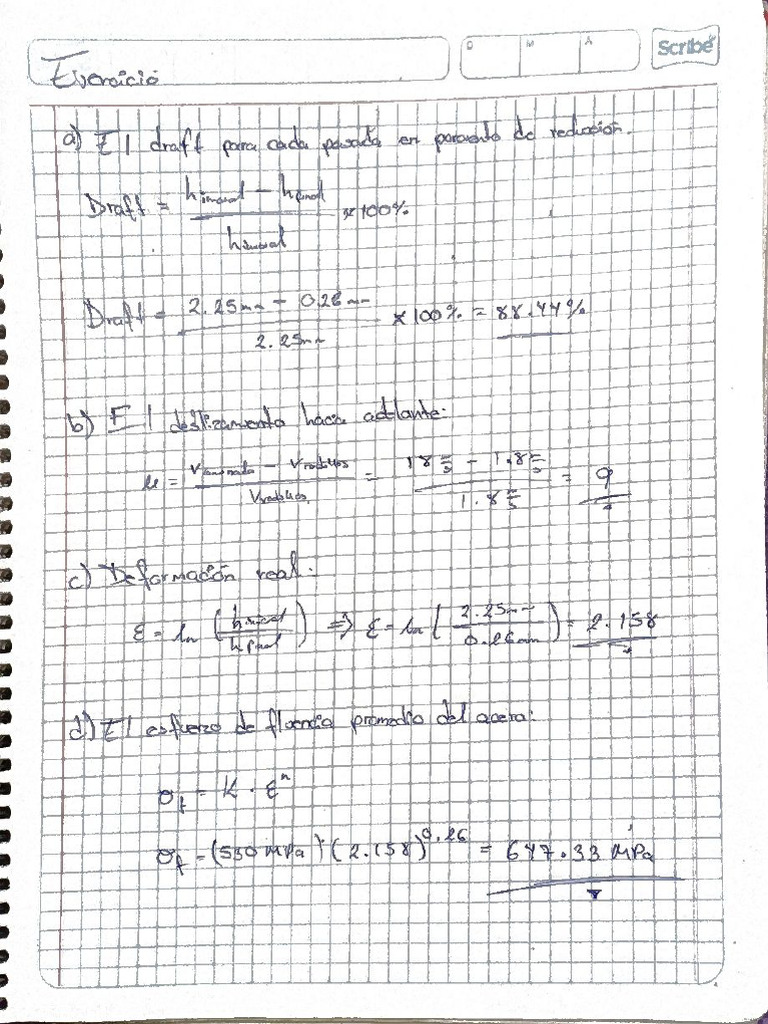 Scribe
D M A
Ejercicio
a) El draft para cada pasada en porcentaje de reducción.
Draft = (h inicial - h final) / h inicial × 100%
Draft = (2.25mm - 0.26mm) / 2.25mm × 100% = 88.44%
b) El deslizamiento hacia adelante:
μ = (V - V rodillos) / V rodillos = (18 m/s - 1.8 m/s) / 1.8 m/s = 9
c) Deformación real:
ε = ln (h inicial / h final) ⇒ ε = ln (2.25mm / 0.26mm) = 2.158
d) El esfuerzo de fluencia promedio del acero:
σf = K · ε^n
σf = (530 MPa) · (2.158)^0.26 = 647.33 MPa